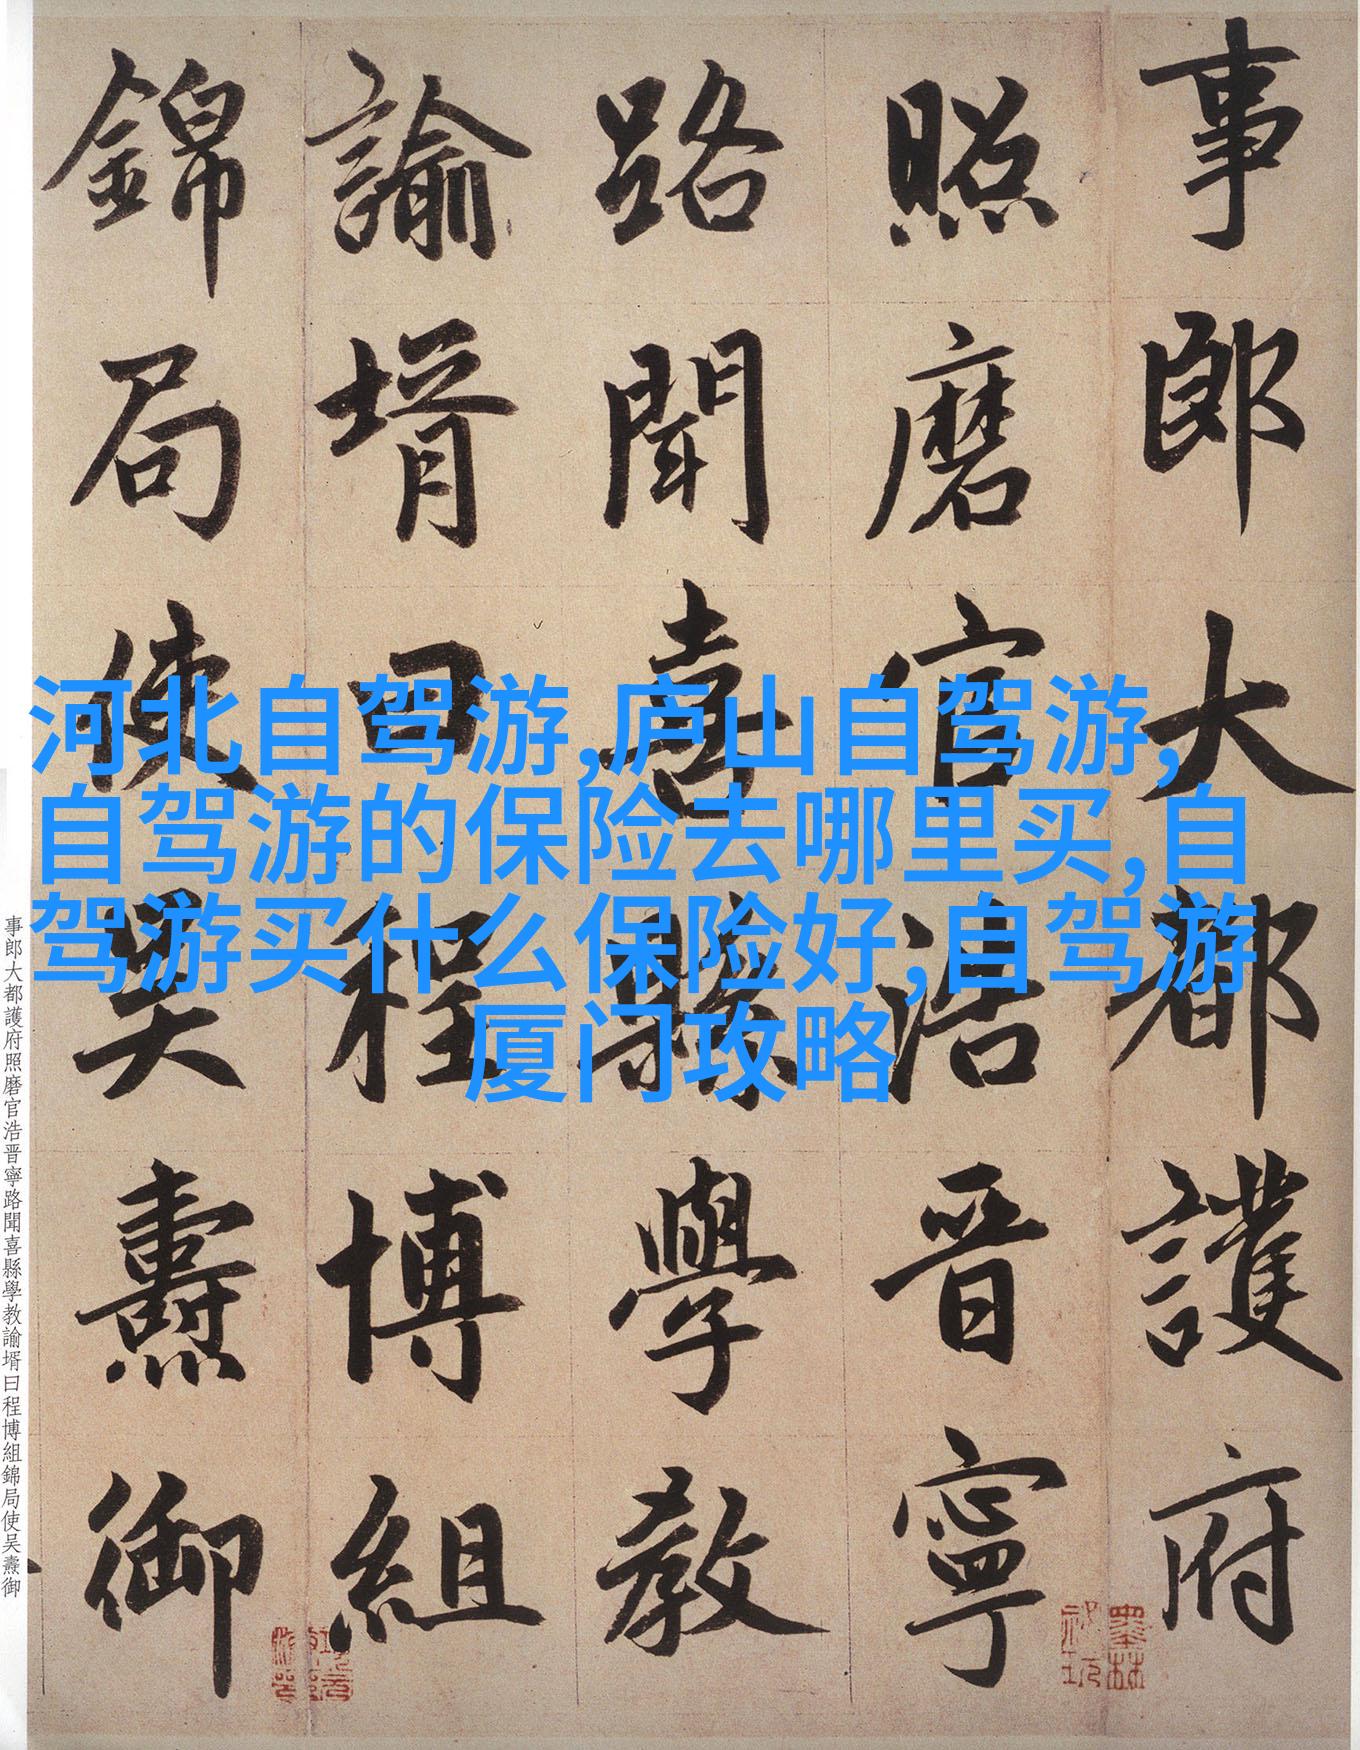 事郎大都護府
照磨官浩晉寧
路聞喜縣學教
諭壻曰程博組
錦局使吴燾御
河北自驾游,庐山自驾游,
自驾游的保险去哪里买,自
驾游买什么保险好,自驾游
厦门攻略
事郎大都護府照磨官浩晋寧路聞喜縣學教諭壻曰程博組錦局使吴燾御